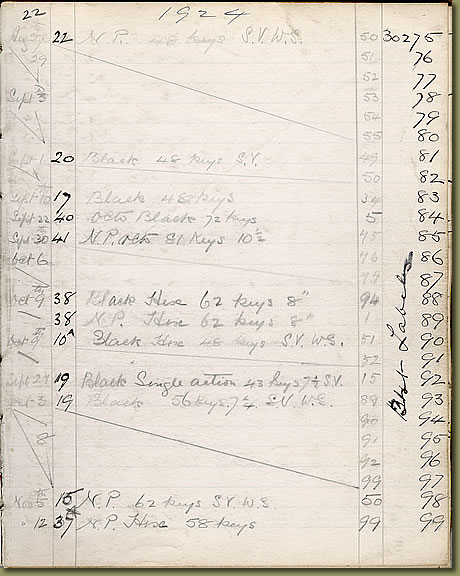 22 1924
22 N.P. 48 keys S.V. W.S. 50 30275
29 51 76
52 77
Sept 3 53 78
54 79
55 80
Sept 1 20 Black 48 keys S.V. 49 81
50 82
Sept 10th 17 Black 48 keys 34 83
Sept 22 40 Octo Black 72 keys 5 84
Sept 30 41 N.P. Octo 81 keys 10½ 45 85
Oct 6 76 86
79 87
Oct 9th 38 Black Hexe 62 keys 8" 94 88
38 N.P. Hexe 62 keys 8" 1 89
Oct 9th 10A Black Hexe 48 keys S.V. W.S. 51 90
52 91
Sept 27 19 Black Single action 43 keys 7¼ S.V. 15 92
Oct 3 19 Black 56 keys 7¼ S.V. W.S. 89 93
90 94
8 91 95
92 96
99 97
Nov 5th 15 N.P. 62 keys S.V. W.S. 50 98
" 12 37 N.P. Hexe 58 keys 99 99
Labels